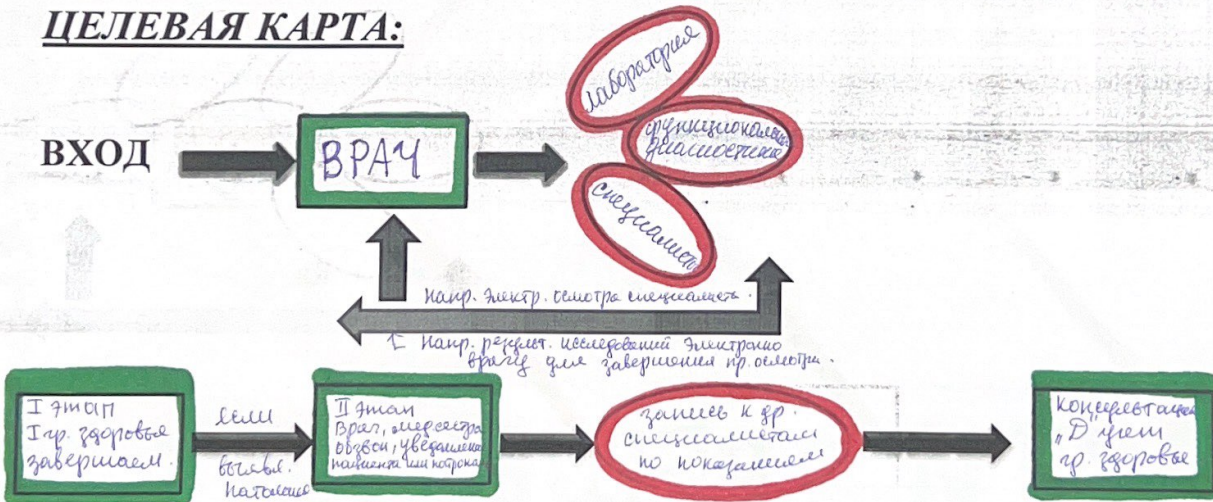 ЦЕЛЕВАЯ КАРТА:
лаборатория
функциональн
диагностика
ВХОД
ВРАЧ
специалисты
Напр. электр. осмотра специалиста.
Напр. результ. исследований электронно
врачу для завершения пр. осмотра.
I этап
I гр. здоровья
завершаем.
если
выявл.
патология
II этап
Врач, медсестра
обзвон, уведомление
пациента или патронаж
запись к др.
специалистам
по показаниям
консультация
"Д" учет
гр. здоровья